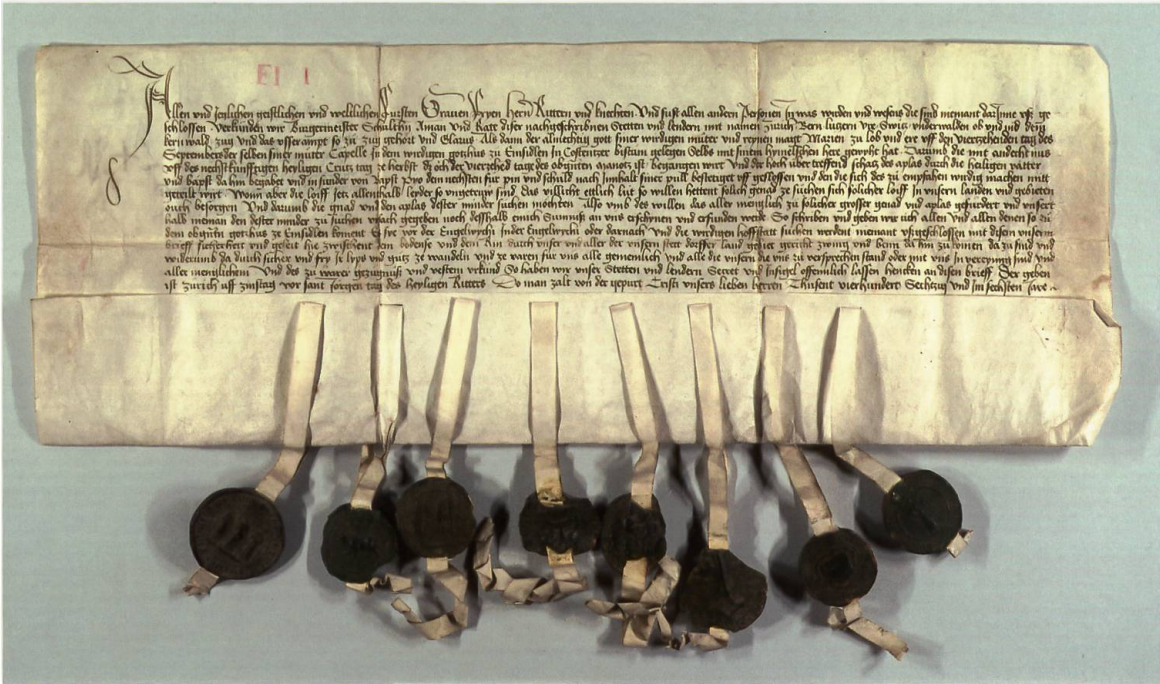 EI 1
Allen und jeglichen geistlichen und weltlichen Fursten Graven Fryen hern Rittern und knechten Und sust allen andern personen in was wirden und wesens die sind niemant darinne uß ge
schlossen Verkunden wir Burgermeister Schulthis Aman und Räte diser nachgeschribnen Stetten und lendern mit namen Zurich Bern lutzern Ure Switz underwalden ob und nid dem
kernwald zug und das usserampt so zu zug gehört und Glarus Als dann der almechtig gott siner wirdigen müter und reynen magt Marien zu lob und ere uff den vierzehenden tag des
Septembers der selben siner müter Capelle in dem wirdigen gotzhus zu Einsidlen in Costentzer bistum gelegen Selbs mit sinem hymelschen here gewyht hat Darumb die mit andacht
uff des nechstkunfftigen heyligen Crutz tag ze herbst der vierzehend tage des obgnten manotz ist Begangen wirt Und der hoch über treffend schatz des aplas durch die heiligen vätter
und bäpst da hin begabet und in sunder von Bapst Pyo dem nechsten für pin und schuld nach Innhalt siner bull bestetiget uß goslossen und den die sich des zu empfahen wirdig machen mitt
geteilt wirt Wonn aber die löiff jetz allenthalb leyder so ungetruw sind das villicht ettlich lüt so willen hettent solich gnad ze süchen sich solicher löiff In unsern landen und gebieten
ouch besorgten Und darumb die gnad und den aplas dester minder süchen möchten Also umb des willen das aller menglich zu solicher grosser gnad und aplas gefurdert und unsert
halb nieman den dester minder zu süchen ursach gegeben noch deßhalb enich Sumniß an uns erschynen und erfunden werde So schriben und geben wir üch allen und allen denen so zu
dem obgntn gotzhus ze Einsidlen koment Es sye vor der Engelwychi Inder Engelwychi oder darnach Und die wirdigen hoffstatt süchen werdent niemant ußgeschlossen mit disem unserm
brieff sicherheit und geleit hie zwüschent dem bodense und dem Rin durch unser und aller der unsern stett dörffer land gebiet gericht zwing und benn da hin zu komen da zu sind und
widerumb da durch sicher und fry ir lyps und gutz ze wandeln und ze varen für uns alle gemeinlich und alle die unsern die uns zu versprechen stand oder mit uns in vereynung sind und
aller menglichem Und des zu warer gezügnuß und vestem urkund So haben wir unser Stetten und lendern Secret und Insigel offennlich lassen hencken an disen brieff Der geben
ist Zürich uff zinstag vor sant Jörgen tag des heyligen Ritters Do man zalt von der gepurt Cristi unsers lieben herren Thusent vierhundert Sechtzig und Im sechsten Jare